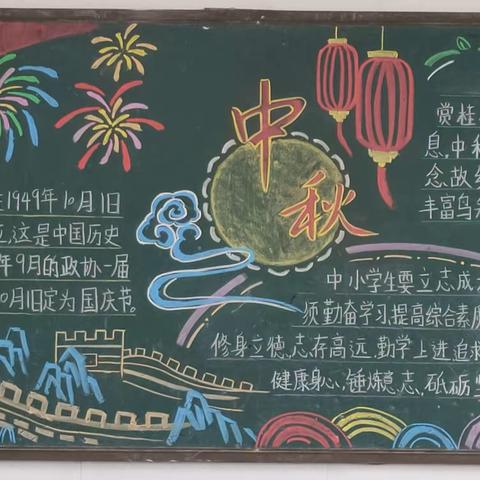 1949年10月1日
立,这是中国历史
年9月的政协一届
10月1日定为国庆节。
中秋
赏桂
息,中秋
念,故
丰富
中小学生要立志成
须勤奋学习,提高综合素质
修身立德,志存高远,勤学上进,追求
健康身心,锤炼意志,砥砺